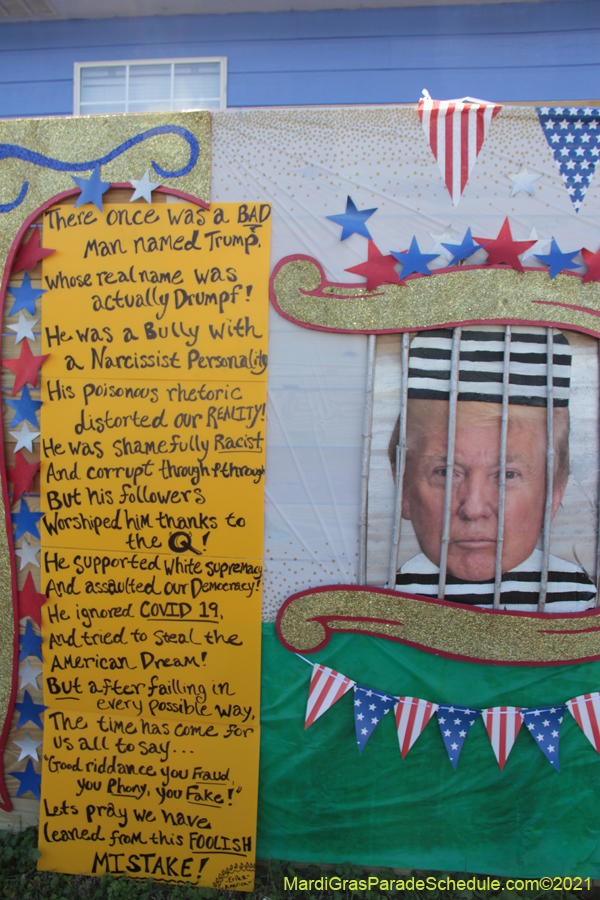 There once was a BAD
Man named Trump,
Whose real name was
actually Drumpf!
He was a Bully with
a Narcissist Personality
His poisonous rhetoric
distorted our REALITY!
He was shamefully Racist
And corrupt through & through
But his followers
Worshiped him thanks to
the Q!
He supported white supremacy
And assaulted our Democracy!
He ignored COVID 19,
And tried to steal the
American Dream!
But after failling in
every possible way,
The time has come for
us all to say...
"Good riddance you Fraud,
you Phony, you Fake!"
Lets pray we have
leaned from this FOOLISH
MISTAKE!
MardiGrasParadeSchedule.com©2021